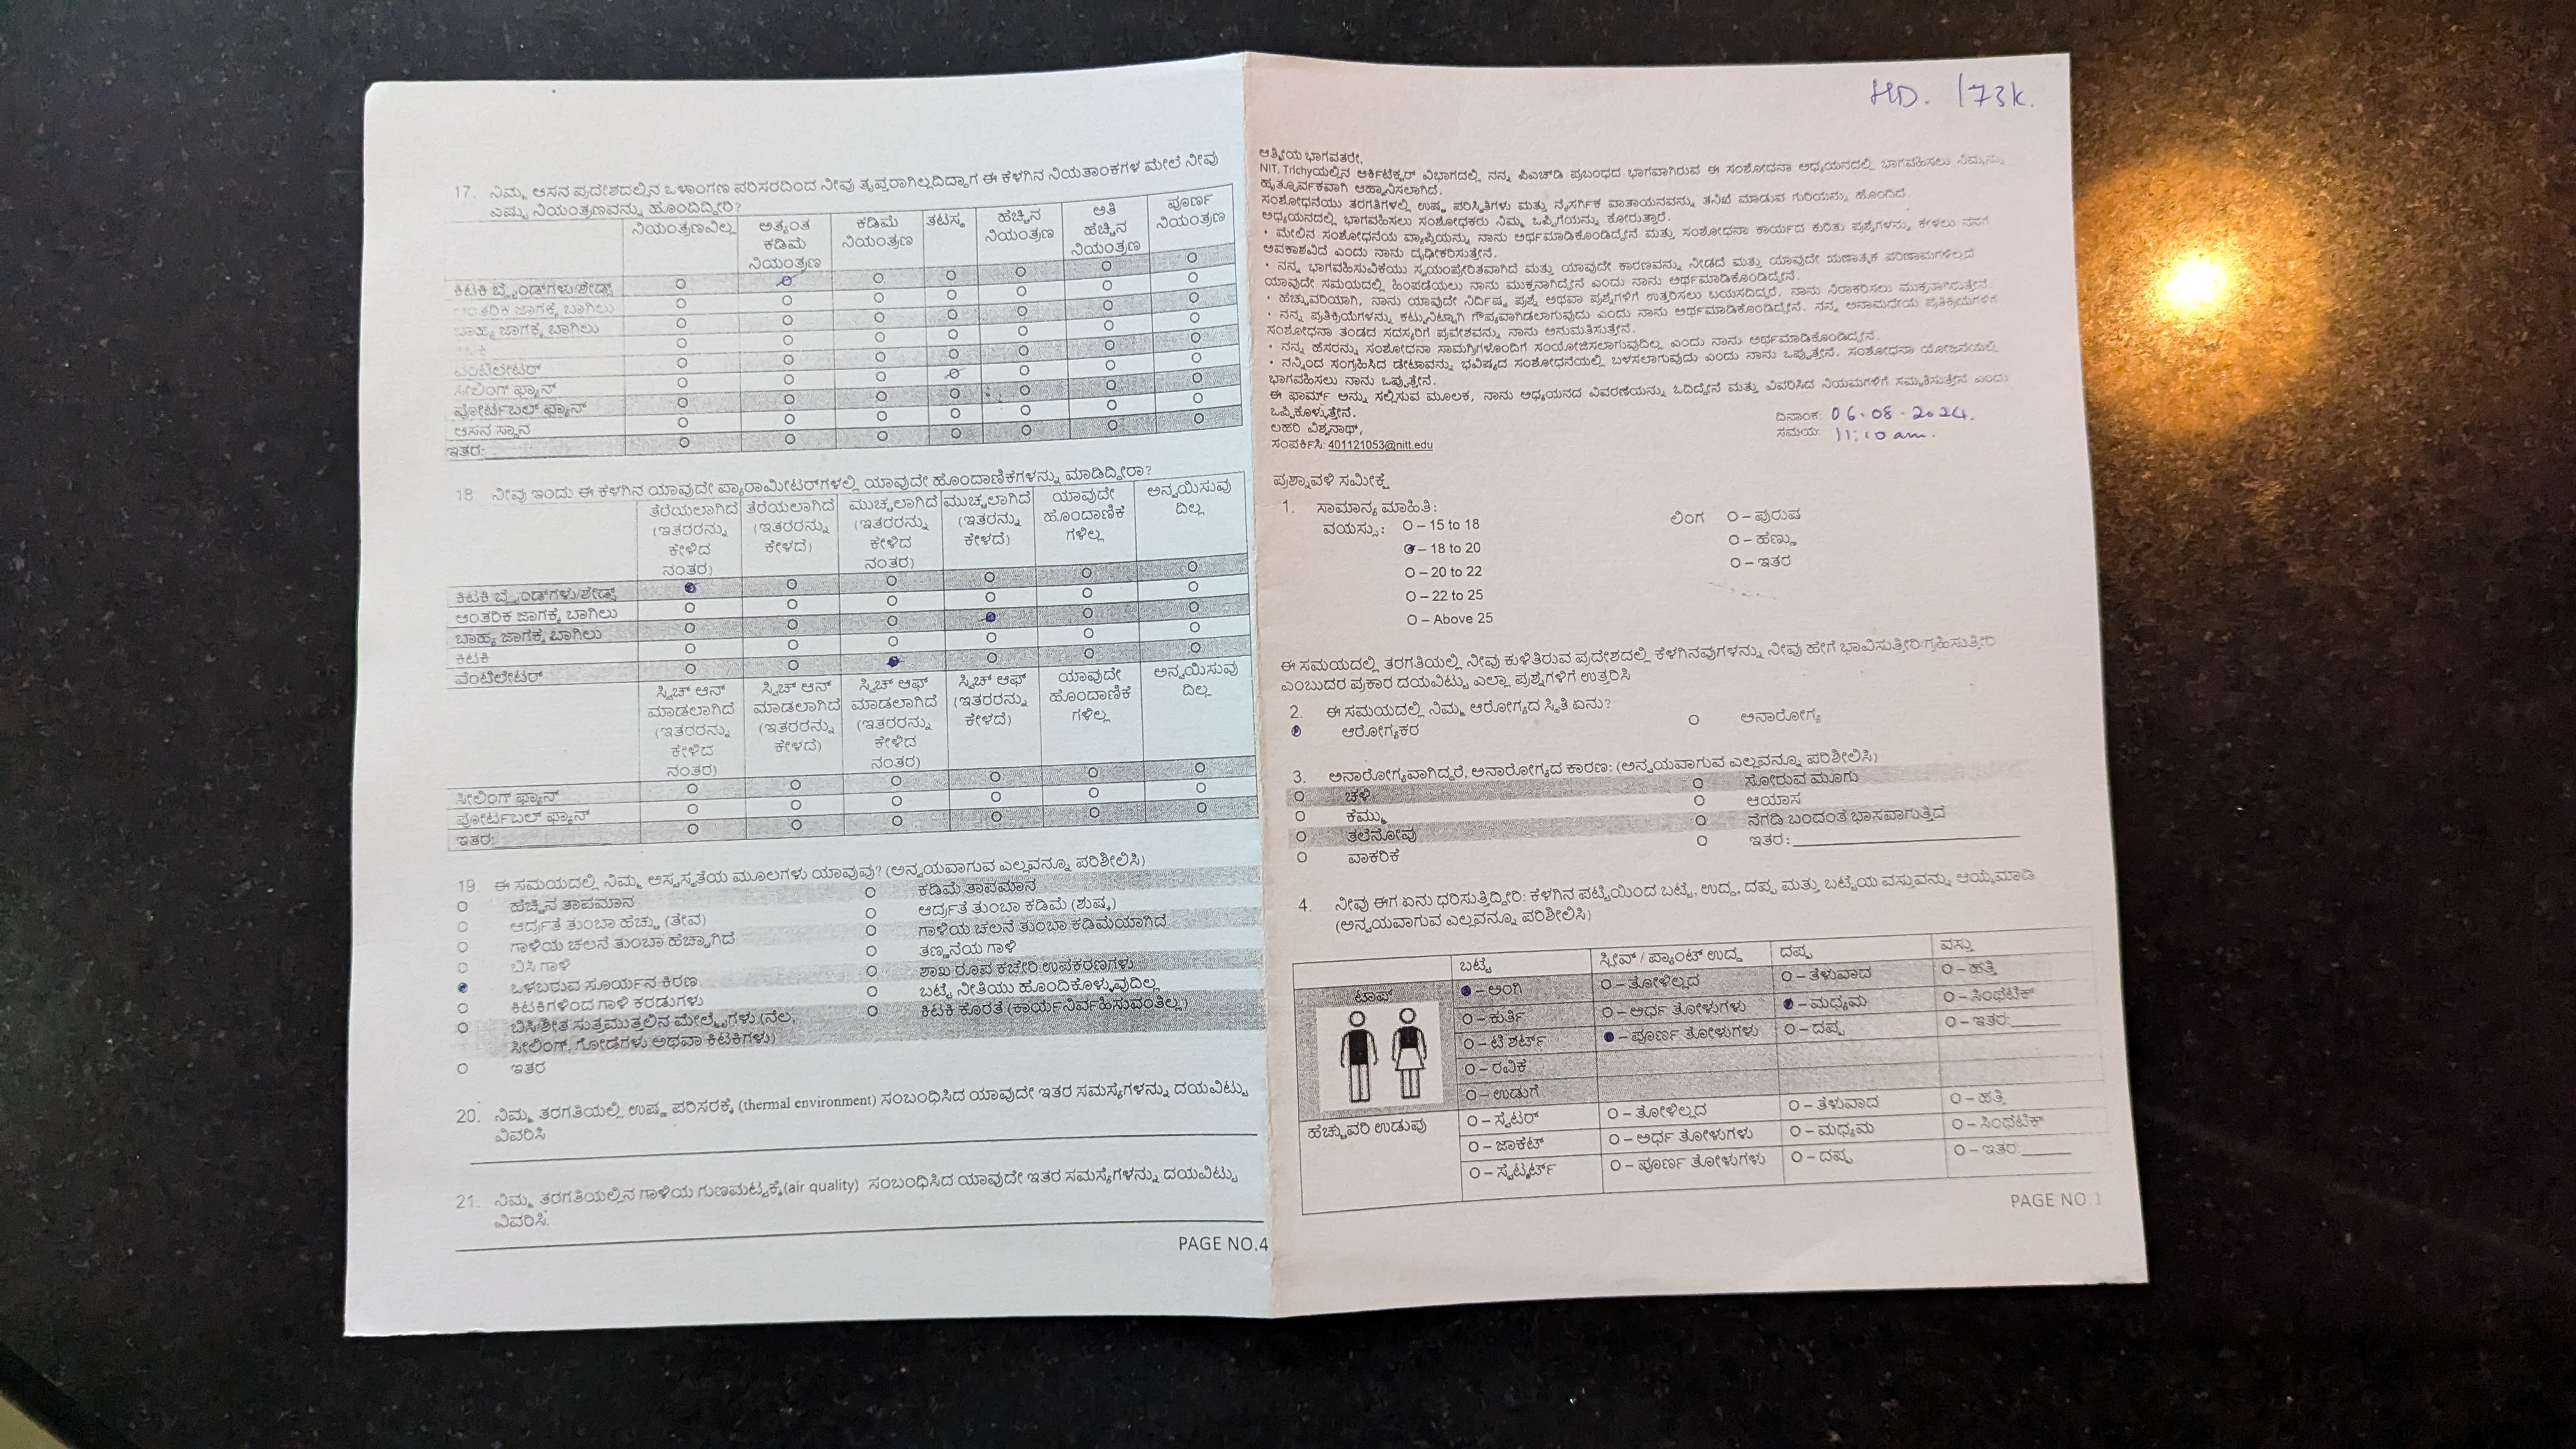 17. ನಿಮ್ಮ ಆಸನ ಪ್ರದೇಶದಲ್ಲಿನ ಒಳಾಂಗಣ ಪರಿಸರದಿಂದ ನೀವು ತೃಪ್ತರಾಗಿಲ್ಲದಿದ್ದಾಗ ಈ ಕೆಳಗಿನ ನಿಯತಾಂಕಗಳ ಮೇಲೆ ನೀವು
ಎಷ್ಟು ನಿಯಂತ್ರಣವನ್ನು ಹೊಂದಿದ್ದೀರಿ?
ನಿಯಂತ್ರಣವಿಲ್ಲ ಅತ್ಯಂತ ಕಡಿಮೆ ನಿಯಂತ್ರಣ ಕಡಿಮೆ ನಿಯಂತ್ರಣ ತಟಸ್ಥ ಹೆಚ್ಚಿನ ನಿಯಂತ್ರಣ ಅತಿ ಹೆಚ್ಚಿನ ನಿಯಂತ್ರಣ ಪೂರ್ಣ ನಿಯಂತ್ರಣ
ಕಿಟಕಿ ಬ್ಲೈಂಡ್‌ಗಳು/ಶೇಡ್ಸ್
ಆಂತರಿಕ ಜಾಗಕ್ಕೆ ಬಾಗಿಲು
ಬಾಹ್ಯ ಜಾಗಕ್ಕೆ ಬಾಗಿಲು
ವೆಂಟಿಲೇಟರ್
ಸೀಲಿಂಗ್ ಫ್ಯಾನ್
ಪೋರ್ಟಬಲ್ ಫ್ಯಾನ್
ಆಸನ ಸ್ಥಾನ
ಇತರ:
18. ನೀವು ಇಂದು ಈ ಕೆಳಗಿನ ಯಾವುದೇ ಪ್ಯಾರಾಮೀಟರ್‌ಗಳಲ್ಲಿ ಯಾವುದೇ ಹೊಂದಾಣಿಕೆಗಳನ್ನು ಮಾಡಿದ್ದೀರಾ?
ತೆರೆಯಲಾಗಿದೆ (ಇತರರನ್ನು ಕೇಳಿದ ನಂತರ) ತೆರೆಯಲಾಗಿದೆ (ಇತರರನ್ನು ಕೇಳದೆ) ಮುಚ್ಚಲಾಗಿದೆ (ಇತರರನ್ನು ಕೇಳಿದ ನಂತರ) ಮುಚ್ಚಲಾಗಿದೆ (ಇತರನ್ನು ಕೇಳದೆ) ಯಾವುದೇ ಹೊಂದಾಣಿಕೆ ಗಳಿಲ್ಲ ಅನ್ವಯಿಸುವು ದಿಲ್ಲ
ಕಿಟಕಿ ಬ್ಲೈಂಡ್‌ಗಳು/ಶೇಡ್ಸ್
ಆಂತರಿಕ ಜಾಗಕ್ಕೆ ಬಾಗಿಲು
ಬಾಹ್ಯ ಜಾಗಕ್ಕೆ ಬಾಗಿಲು
ಕಿಟಕಿ
ವೆಂಟಿಲೇಟರ್
ಸ್ವಿಚ್ ಆನ್ ಮಾಡಲಾಗಿದೆ (ಇತರರನ್ನು ಕೇಳಿದ ನಂತರ) ಸ್ವಿಚ್ ಆನ್ ಮಾಡಲಾಗಿದೆ (ಇತರರನ್ನು ಕೇಳದೆ) ಸ್ವಿಚ್ ಆಫ್ ಮಾಡಲಾಗಿದೆ (ಇತರರನ್ನು ಕೇಳಿದ ನಂತರ) ಸ್ವಿಚ್ ಆಫ್ (ಇತರರನ್ನು ಕೇಳದೆ) ಯಾವುದೇ ಹೊಂದಾಣಿಕೆ ಗಳಿಲ್ಲ ಅನ್ವಯಿಸುವು ದಿಲ್ಲ
ಸೀಲಿಂಗ್ ಫ್ಯಾನ್
ಪೋರ್ಟಬಲ್ ಫ್ಯಾನ್
ಇತರ:
19. ಈ ಸಮಯದಲ್ಲಿ ನಿಮ್ಮ ಅಸ್ವಸ್ಥತೆಯ ಮೂಲಗಳು ಯಾವುವು? (ಅನ್ವಯವಾಗುವ ಎಲ್ಲವನ್ನೂ ಪರಿಶೀಲಿಸಿ)
ಹೆಚ್ಚಿನ ತಾಪಮಾನ ಕಡಿಮೆ ತಾಪಮಾನ
ಆರ್ದ್ರತೆ ತುಂಬಾ ಹೆಚ್ಚು (ತೇವ) ಆರ್ದ್ರತೆ ತುಂಬಾ ಕಡಿಮೆ (ಶುಷ್ಕ)
ಗಾಳಿಯ ಚಲನೆ ತುಂಬಾ ಹೆಚ್ಚಾಗಿದೆ ಗಾಳಿಯ ಚಲನೆ ತುಂಬಾ ಕಡಿಮೆಯಾಗಿದೆ
ಬಿಸಿ ಗಾಳಿ ತಣ್ಣನೆಯ ಗಾಳಿ
ಒಳಬರುವ ಸೂರ್ಯನ ಕಿರಣ ಶಾಖ ರೂಪ ಕಚೇರಿ ಉಪಕರಣಗಳು
ಕಿಟಕಿಗಳಿಂದ ಗಾಳಿ ಕರಡುಗಳು ಬಟ್ಟೆ ನೀತಿಯು ಹೊಂದಿಕೊಳ್ಳುವುದಿಲ್ಲ
ಬಿಸಿ/ಶೀತ ಸುತ್ತಮುತ್ತಲಿನ ಮೇಲ್ಮೈಗಳು (ನೆಲ, ಕಿಟಕಿ ಕೊರತೆ (ಕಾರ್ಯನಿರ್ವಹಿಸುವಂತಿಲ್ಲ)
ಸೀಲಿಂಗ್, ಗೋಡೆಗಳು ಅಥವಾ ಕಿಟಕಿಗಳು)
ಇತರ
20. ನಿಮ್ಮ ತರಗತಿಯಲ್ಲಿ ಉಷ್ಣ ಪರಿಸರಕ್ಕೆ (thermal environment) ಸಂಬಂಧಿಸಿದ ಯಾವುದೇ ಇತರ ಸಮಸ್ಯೆಗಳನ್ನು ದಯವಿಟ್ಟು
ವಿವರಿಸಿ
21. ನಿಮ್ಮ ತರಗತಿಯಲ್ಲಿನ ಗಾಳಿಯ ಗುಣಮಟ್ಟಕ್ಕೆ(air quality) ಸಂಬಂಧಿಸಿದ ಯಾವುದೇ ಇತರ ಸಮಸ್ಯೆಗಳನ್ನು ದಯವಿಟ್ಟು
ವಿವರಿಸಿ.
PAGE NO.4
HD. 173K.
ಆತ್ಮೀಯ ಭಾಗವತರೇ,
NIT, Trichyಯಲ್ಲಿನ ಆರ್ಕಿಟೆಕ್ಚರ್ ವಿಭಾಗದಲ್ಲಿ ನನ್ನ ಪಿಎಚ್‌ಡಿ ಪ್ರಬಂಧದ ಭಾಗವಾಗಿರುವ ಈ ಸಂಶೋಧನಾ ಅಧ್ಯಯನದಲ್ಲಿ ಭಾಗವಹಿಸಲು ನಿಮ್ಮನ್ನು
ಹೃತ್ಪೂರ್ವಕವಾಗಿ ಆಹ್ವಾನಿಸಲಾಗಿದೆ.
ಸಂಶೋಧನೆಯು ತರಗತಿಗಳಲ್ಲಿ ಉಷ್ಣ ಪರಿಸ್ಥಿತಿಗಳು ಮತ್ತು ನೈಸರ್ಗಿಕ ವಾತಾಯನವನ್ನು ತನಿಖೆ ಮಾಡುವ ಗುರಿಯನ್ನು ಹೊಂದಿದೆ.
ಅಧ್ಯಯನದಲ್ಲಿ ಭಾಗವಹಿಸಲು ಸಂಶೋಧಕರು ನಿಮ್ಮ ಒಪ್ಪಿಗೆಯನ್ನು ಕೋರುತ್ತಾರೆ.
• ಮೇಲಿನ ಸಂಶೋಧನೆಯ ವ್ಯಾಪ್ತಿಯನ್ನು ನಾನು ಅರ್ಥಮಾಡಿಕೊಂಡಿದ್ದೇನೆ ಮತ್ತು ಸಂಶೋಧನಾ ಕಾರ್ಯದ ಕುರಿತು ಪ್ರಶ್ನೆಗಳನ್ನು ಕೇಳಲು ನನಗೆ
ಅವಕಾಶವಿದೆ ಎಂದು ನಾನು ದೃಢೀಕರಿಸುತ್ತೇನೆ.
• ನನ್ನ ಭಾಗವಹಿಸುವಿಕೆಯು ಸ್ವಯಂಪ್ರೇರಿತವಾಗಿದೆ ಮತ್ತು ಯಾವುದೇ ಕಾರಣವನ್ನು ನೀಡದೆ ಮತ್ತು ಯಾವುದೇ ಋಣಾತ್ಮಕ ಪರಿಣಾಮಗಳಿಲ್ಲದೆ
ಯಾವುದೇ ಸಮಯದಲ್ಲಿ ಹಿಂಪಡೆಯಲು ನಾನು ಮುಕ್ತನಾಗಿದ್ದೇನೆ ಎಂದು ನಾನು ಅರ್ಥಮಾಡಿಕೊಂಡಿದ್ದೇನೆ.
• ಹೆಚ್ಚುವರಿಯಾಗಿ, ನಾನು ಯಾವುದೇ ನಿರ್ದಿಷ್ಟ ಪ್ರಶ್ನೆ ಅಥವಾ ಪ್ರಶ್ನೆಗಳಿಗೆ ಉತ್ತರಿಸಲು ಬಯಸದಿದ್ದರೆ, ನಾನು ನಿರಾಕರಿಸಲು ಮುಕ್ತನಾಗಿರುತ್ತೇನೆ.
• ನನ್ನ ಪ್ರತಿಕ್ರಿಯೆಗಳನ್ನು ಕಟ್ಟುನಿಟ್ಟಾಗಿ ಗೌಪ್ಯವಾಗಿಡಲಾಗುವುದು ಎಂದು ನಾನು ಅರ್ಥಮಾಡಿಕೊಂಡಿದ್ದೇನೆ. ನನ್ನ ಅನಾಮಧೇಯ ಪ್ರತಿಕ್ರಿಯೆಗಳಿಗೆ
ಸಂಶೋಧನಾ ತಂಡದ ಸದಸ್ಯರಿಗೆ ಪ್ರವೇಶವನ್ನು ನಾನು ಅನುಮತಿಸುತ್ತೇನೆ.
• ನನ್ನ ಹೆಸರನ್ನು ಸಂಶೋಧನಾ ಸಾಮಗ್ರಿಗಳೊಂದಿಗೆ ಸಂಯೋಜಿಸಲಾಗುವುದಿಲ್ಲ ಎಂದು ನಾನು ಅರ್ಥಮಾಡಿಕೊಂಡಿದ್ದೇನೆ.
• ನನ್ನಿಂದ ಸಂಗ್ರಹಿಸಿದ ಡೇಟಾವನ್ನು ಭವಿಷ್ಯದ ಸಂಶೋಧನೆಯಲ್ಲಿ ಬಳಸಲಾಗುವುದು ಎಂದು ನಾನು ಒಪ್ಪುತ್ತೇನೆ. ಸಂಶೋಧನಾ ಯೋಜನೆಯಲ್ಲಿ
ಭಾಗವಹಿಸಲು ನಾನು ಒಪ್ಪುತ್ತೇನೆ.
ಈ ಫಾರ್ಮ್ ಅನ್ನು ಸಲ್ಲಿಸುವ ಮೂಲಕ, ನಾನು ಅಧ್ಯಯನದ ವಿವರಣೆಯನ್ನು ಓದಿದ್ದೇನೆ ಮತ್ತು ವಿವರಿಸಿದ ನಿಯಮಗಳಿಗೆ ಸಮ್ಮತಿಸುತ್ತೇನೆ ಎಂದು
ಒಪ್ಪಿಕೊಳ್ಳುತ್ತೇನೆ.
ದಿನಾಂಕ: 06-08-2024.
ಲಹರಿ ವಿಶ್ವನಾಥ್,
ಸಮಯ: 11:10 am.
ಸಂಪರ್ಕಿಸಿ: 401121053@nitt.edu
ಪ್ರಶ್ನಾವಳಿ ಸಮೀಕ್ಷೆ
1. ಸಾಮಾನ್ಯ ಮಾಹಿತಿ:
ವಯಸ್ಸು: O – 15 to 18 ಲಿಂಗ O – ಪುರುಷ
O – 18 to 20 O – ಹೆಣ್ಣು
O – 20 to 22 O – ಇತರ
O – 22 to 25
O – Above 25
ಈ ಸಮಯದಲ್ಲಿ ತರಗತಿಯಲ್ಲಿ ನೀವು ಕುಳಿತಿರುವ ಪ್ರದೇಶದಲ್ಲಿ ಕೆಳಗಿನವುಗಳನ್ನು ನೀವು ಹೇಗೆ ಭಾವಿಸುತ್ತೀರಿ/ಗ್ರಹಿಸುತ್ತೀರಿ
ಎಂಬುದರ ಪ್ರಕಾರ ದಯವಿಟ್ಟು ಎಲ್ಲಾ ಪ್ರಶ್ನೆಗಳಿಗೆ ಉತ್ತರಿಸಿ
2. ಈ ಸಮಯದಲ್ಲಿ ನಿಮ್ಮ ಆರೋಗ್ಯದ ಸ್ಥಿತಿ ಏನು?
ಆರೋಗ್ಯಕರ ಅನಾರೋಗ್ಯ
3. ಅನಾರೋಗ್ಯವಾಗಿದ್ದರೆ, ಅನಾರೋಗ್ಯದ ಕಾರಣ: (ಅನ್ವಯವಾಗುವ ಎಲ್ಲವನ್ನೂ ಪರಿಶೀಲಿಸಿ)
ಚಳಿ ಸೋರುವ ಮೂಗು
ಕೆಮ್ಮು ಆಯಾಸ
ತಲೆನೋವು ನೆಗಡಿ ಬಂದಂತೆ ಭಾಸವಾಗುತ್ತಿದೆ
ವಾಕರಿಕೆ ಇತರ:
4. ನೀವು ಈಗ ಏನು ಧರಿಸುತ್ತಿದ್ದೀರಿ: ಕೆಳಗಿನ ಪಟ್ಟಿಯಿಂದ ಬಟ್ಟೆ, ಉದ್ದ, ದಪ್ಪ ಮತ್ತು ಬಟ್ಟೆಯ ವಸ್ತುವನ್ನು ಆಯ್ಕೆಮಾಡಿ
(ಅನ್ವಯವಾಗುವ ಎಲ್ಲವನ್ನೂ ಪರಿಶೀಲಿಸಿ)
ಬಟ್ಟೆ ಸ್ಲೀವ್ / ಪ್ಯಾಂಟ್ ಉದ್ದ ದಪ್ಪ ವಸ್ತು
ಟಾಪ್ O – ಅಂಗಿ O – ತೋಳಿಲ್ಲದ O – ತೆಳುವಾದ O – ಹತ್ತಿ
O – ಕುರ್ತಿ O – ಅರ್ಧ ತೋಳುಗಳು O – ಮಧ್ಯಮ O – ಸಿಂಥೆಟಿಕ್
O – ಟಿ ಶರ್ಟ್ O – ಪೂರ್ಣ ತೋಳುಗಳು O – ದಪ್ಪ O – ಇತರ:
O – ರವಿಕೆ
O – ಉಡುಗೆ
ಹೆಚ್ಚುವರಿ ಉಡುಪು O – ಸ್ವೆಟರ್ O – ತೋಳಿಲ್ಲದ O – ತೆಳುವಾದ O – ಹತ್ತಿ
O – ಜಾಕೆಟ್ O – ಅರ್ಧ ತೋಳುಗಳು O – ಮಧ್ಯಮ O – ಸಿಂಥೆಟಿಕ್
O – ಸ್ವೆಟ್ಶರ್ಟ್ O – ಪೂರ್ಣ ತೋಳುಗಳು O – ದಪ್ಪ O – ಇತರ:
PAGE NO 1